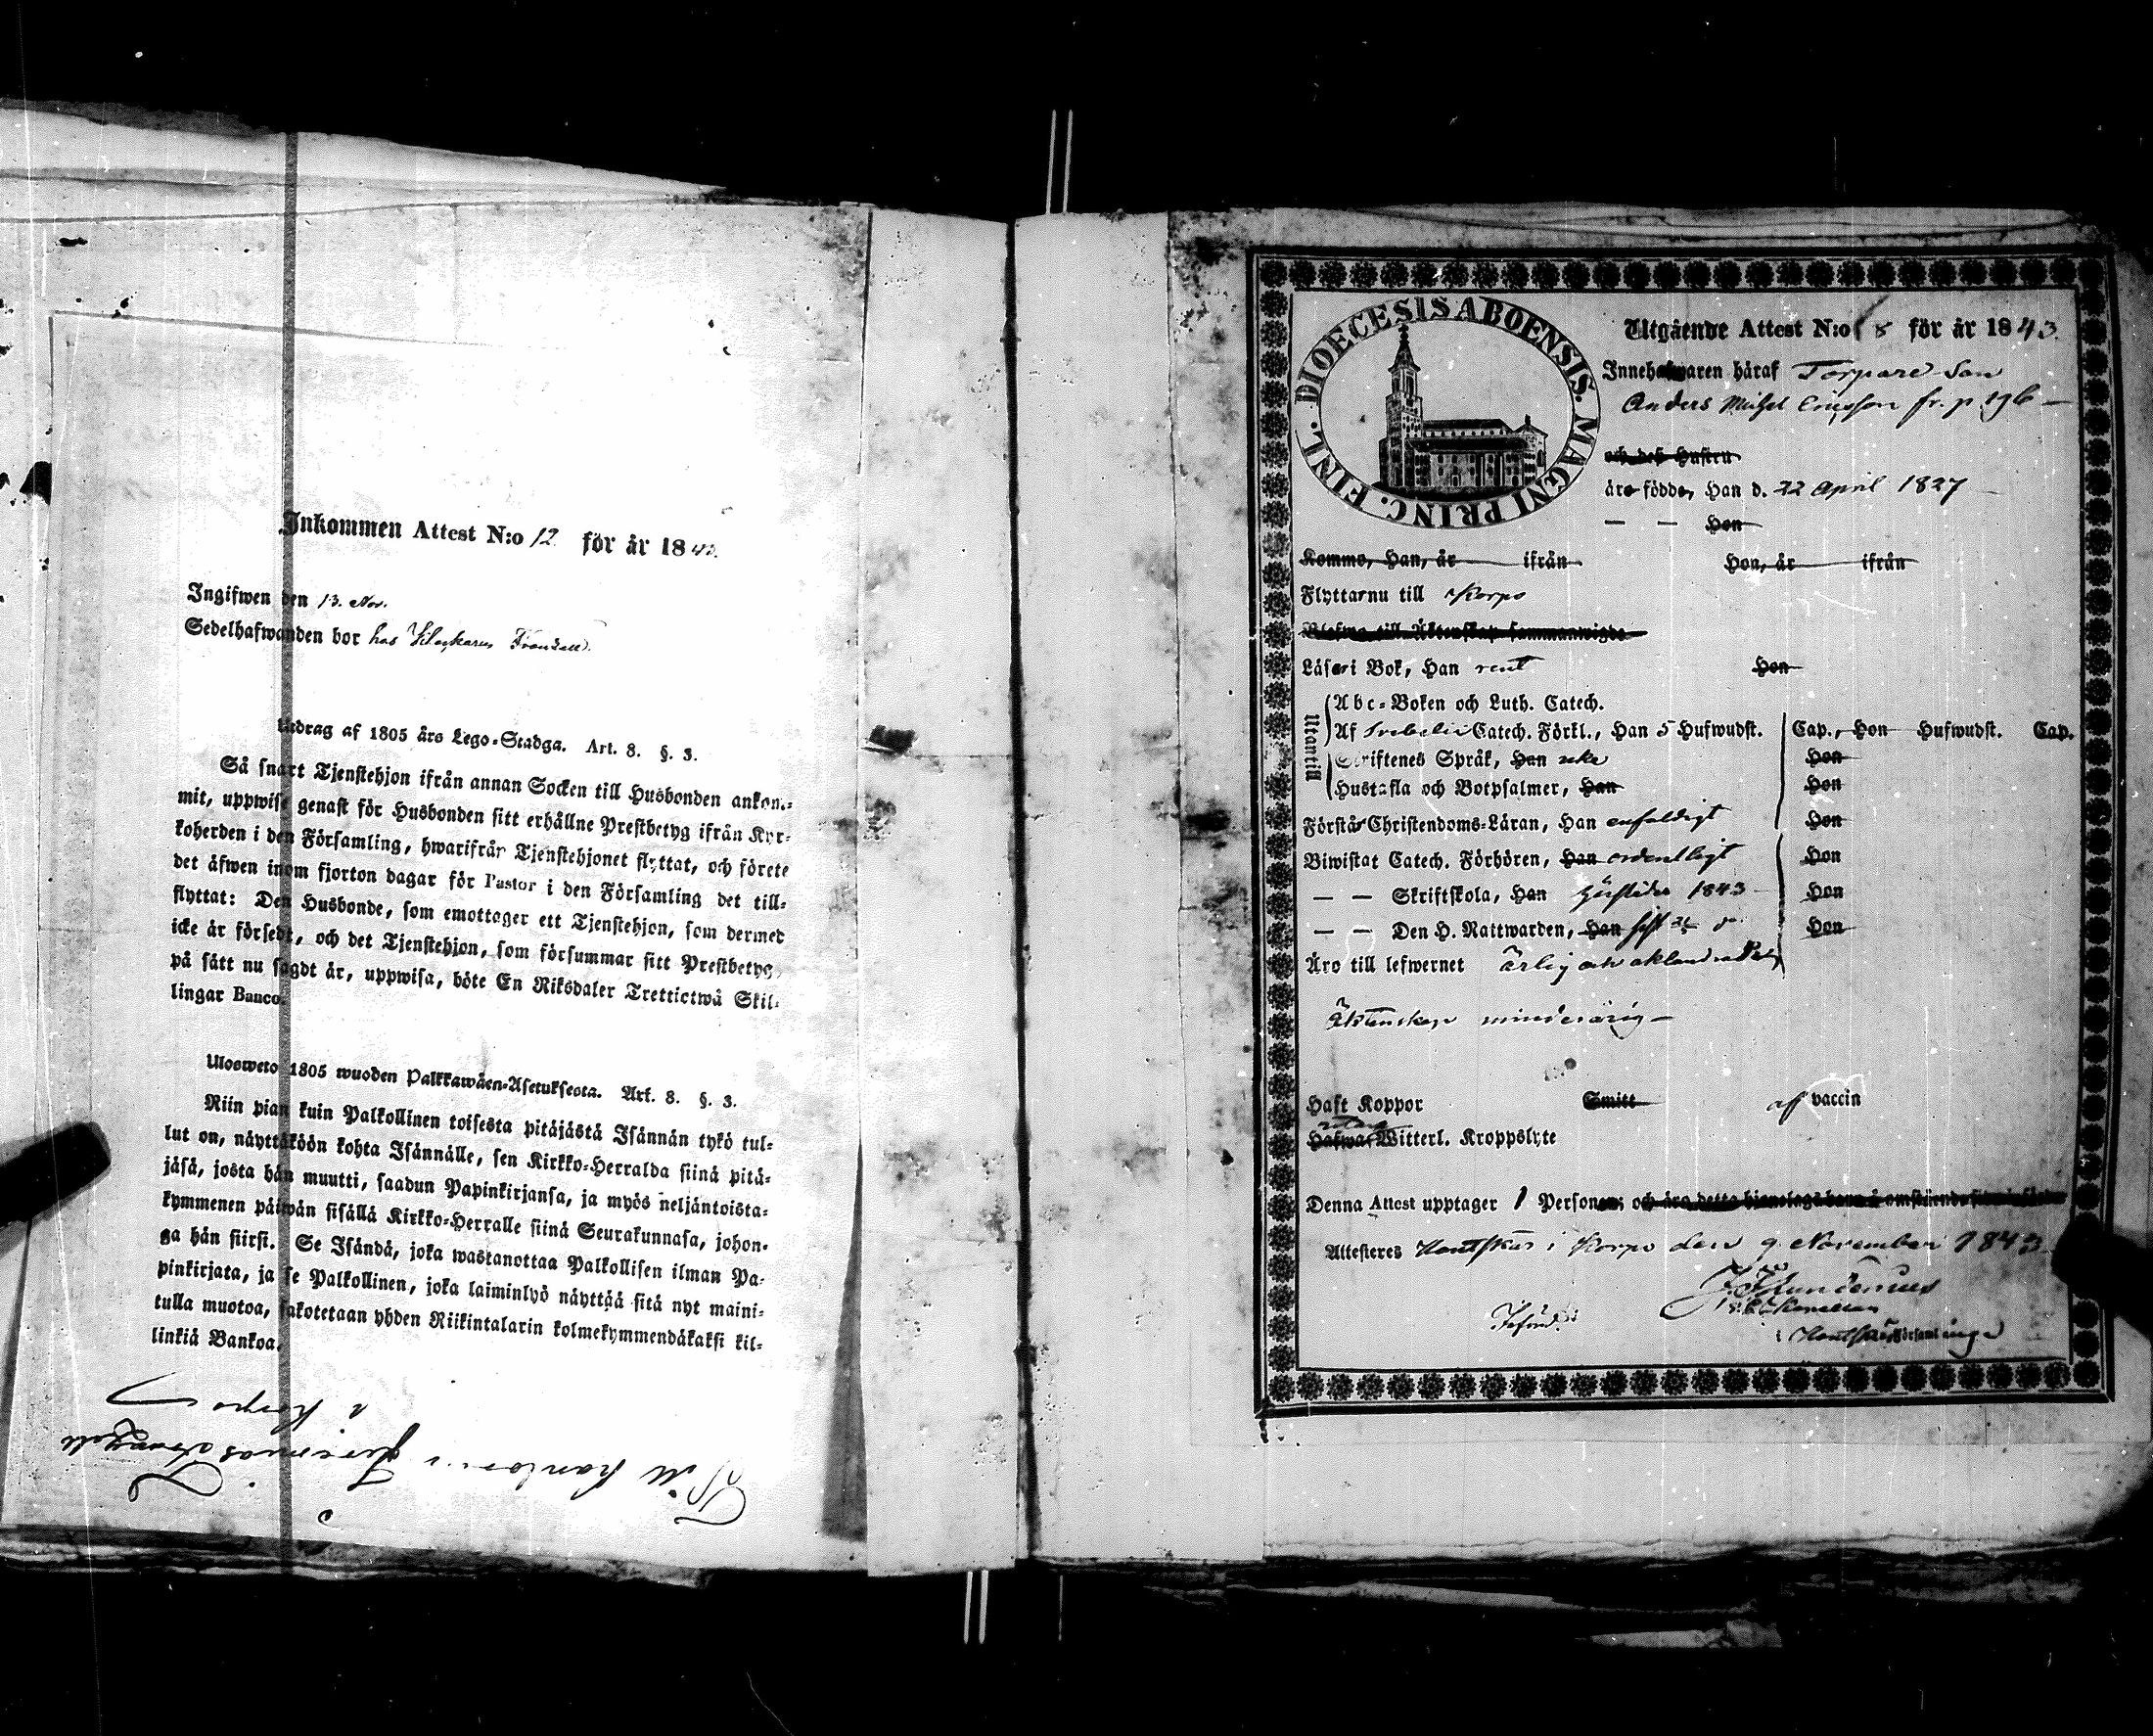 Inkommen Attest N:o 12 för år 1843.
Ingifwen den 13. Nov.
Sedelhafwanden bor hos
Utdrag af 1805 års Lego-Stadga. Art. 8. §. 3.
Så snart Tjenstehjon ifrån annan Socken till Husbonden ankom-
mit, uppwise genast för Husbonden sitt erhållne Prestbetyg ifrån Kyr-
koherden i den Församling, hwarifrån Tjenstehjonet flyttat, och förete
det äfwen inom fjorton dagar för Pastor i den Församling det till-
flyttat: Den Husbonde, som emottager ett Tjenstehjon, som dermed
icke är försedt, och det Tjenstehjon, som försummar sitt Prestbetyg,
på sätt nu sagdt är, uppwisa, böte En Riksdaler Trettiotwå Skil-
lingar Banco.
Ulosweto 1805 wuoden Palkkawäen-Asetuksesta. Art. 8. §. 3.
Niin pian kuin Palkollinen toisesta pitäjästä Isännän tykö tul-
lut on, näyttäköön kohta Isännälle, sen Kirkko-Herralda siinä pitä-
jäsä, josta hän muutti, saadun Papinkirjansa, ja myös neljäntoista-
kymmenen päiwän sisällä Kirkko-Herralle siinä Seurakunnasa, johon-
ga hän siirsi. Se Isändä, joka wastanottaa Palkollisen ilman Pa-
pinkirjata, ja se Palkollinen, joka laiminlyö näyttää sitä nyt maini-
tulla muotoa, sakotetaan yhden Riikintalarin kolmekymmendäkaksi kil-
linkiä Bankoa.
Till
i Korpo
DIOECESIS ABOENSIS. MAGNI PRINC. FINL.
Utgående Attest N:o 8 för år 1843.
Innehafwaren häraf Torpare Son
Anders Michel Ericsson fr. p 196
och deß Hustru
äro födde, Han d. 22 April 1827
— — Hon
Kommo, Han, år ifrån Hon, år ifrån
Flyttar nu till Korpo
Läser i Bok, Han rent Hon
Utantill
Abc-Boken och Luth. Catech.
Af Svebelii Catech. Förkl., Han 5 Hufwudst. Cap., Hon Hufwudst. Cap.
Skriftenes Språk, Han icke Hon
Hustafla och Botpsalmer, Han Hon
Förstår Christendoms-Läran, Han enfaldigt Hon
Biwistat Catech. Förhören, Han ordentligt Hon
— — Skriftskola, Han 1843 Hon
— — Den H. Nattwarden, Han sist Hon
Äro till lefwernet ärlig och
Äktenskap minderårig —
Haft Koppor Smitt af vaccin
Hafwa Witterl. Kroppslyte
Denna Attest upptager 1 Personer; och
Attesteres Houtskär i Korpo den 9 November 1843
i Houtskärs Församlinge